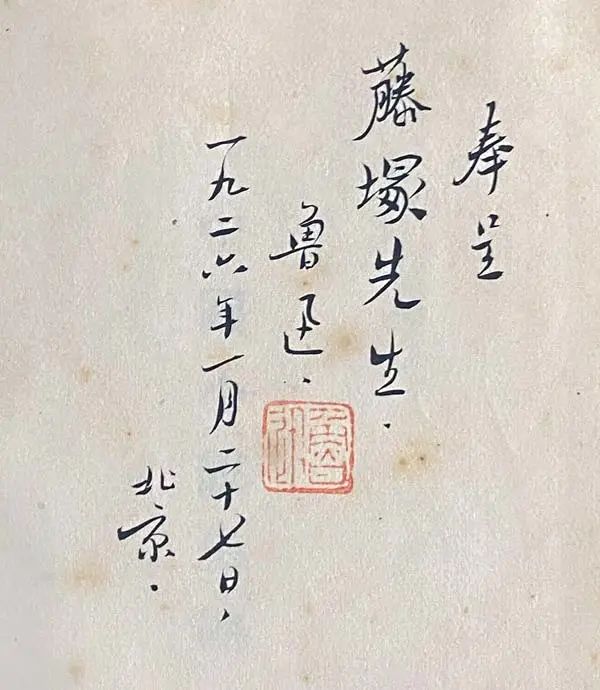 奉呈
藤塚先生.
魯迅.
魯迅
一九二六年一月二十七日,
北京.